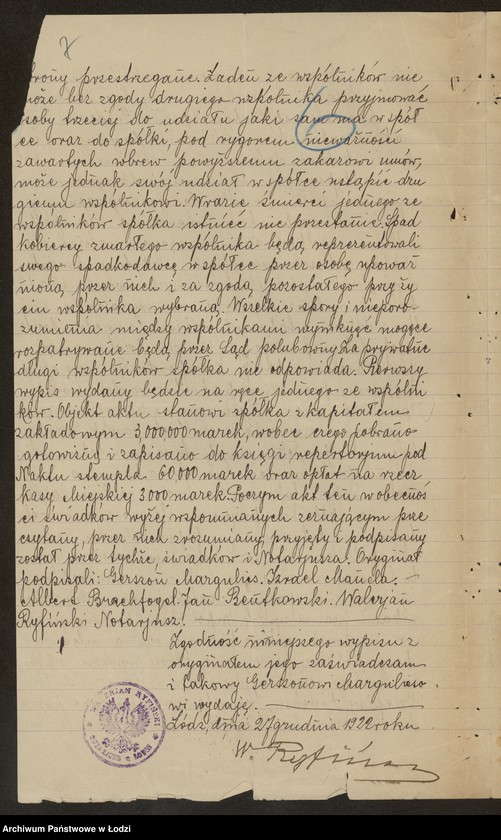 strony przestrzegane. Żaden ze wspólników nie
może bez zgody drugiego wspólnika przyjmować
osoby trzeciej do udziału jaki sam ma w spół
ce oraz do spółki, pod rygorem nieważności
zawartych wbrew powyższemu zakazowi umów,
może jednak swój udział w spółce ustąpić dru
giemu wspólnikowi. W razie śmierci jednego ze
wspólników spółka istnieć nie przestanie. Spad
kobiercy zmarłego wspólnika będą reprezentowali
swego spadkodawcę w spółce przez osobę upoważ
nioną przez nich i za zgodą pozostałego przy ży
ciu wspólnika wybraną. Wszelkie spory i nieporo-
zumienia między wspólnikami wyniknąć mogące
rozpatrywane będą przez Sąd polubowny. Za prywatne
długi wspólników spółka nie odpowiada. Pierwszy
wypis wydany będzie na ręce jednego ze wspólni
ków. Objekt aktu stanowi spółka z kapitałem
zakładowym 3,000,000 marek, wobec czego pobrano
gotowizną i zapisano do księgi repertorjum pod
N aktu stempla 60000 marek oraz opłat na rzecz
kasy Miejskiej 3000 marek. Poczym akt ten w obecnoś
ci świadków wyżej wspomnianych zeznającym prze
czytany, przez nich zrozumiany, przyjęty i podpisany
został przez tychże, świadków i Notarjusza. Oryginał
podpisali: Gerszon Margulies. Izrael Manela.
Albert Brachfogel. Jan Bentkowski. Walerjan
Ryfiński Notarjusz.
Zgodność niniejszego wypisu z
oryginałem jego zaświadczam
i takowy Gerszonowi Marguliso
wi wydaję.
Łódź, dnia 27 grudnia 1922 roku
W. Ryfiński
Archiwum Państwowe w Łodzi